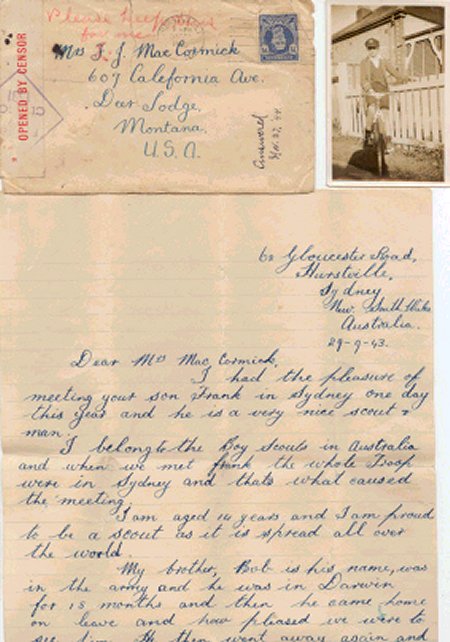 Please keep
for me
OPENED BY CENSOR
Mrs F. J. Mac Cormick
607 Calefornia Ave.
Deer Lodge,
Montana.
U.S.A.
Answered
Nov. 27, 44
62 Gloucester Road,
Hurstville,
Sydney
New South Wales
Australia.
29-9-43.
Dear Mrs Mac Cormick,
I had the pleasure of
meeting your son Frank in Sydney one day
this year and he is a very nice scout &
man.
I belong to the Boy scouts in Australia
and when we met frank the whole Troop
were in Sydney and thats what caused
the meeting.
I am aged 14 years and I am proud
to be a scout as it is spread all over
the world.
My brother, Bob is his name, was
in the army and he was in Darwin
for 18 months and then he came home
on leave and how pleased we were to
see him. He then went away again and